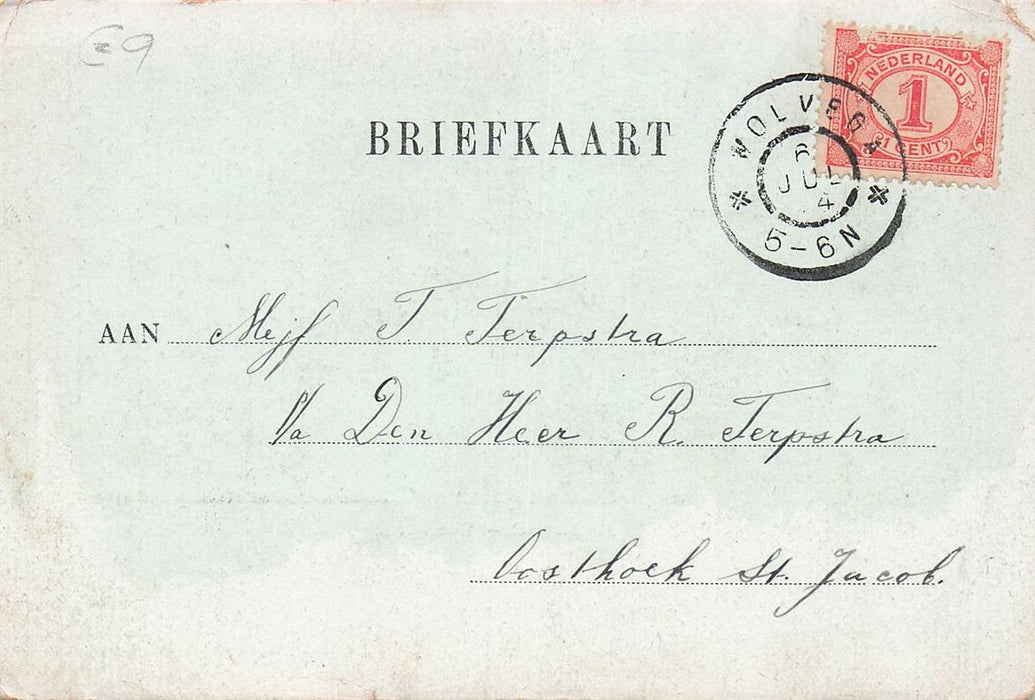 €9
NEDERLAND
1
1 CENT
BRIEFKAART
WOLVEGA
6
JUL
4
5-6N
AAN Mejf T. Terpstra
P/a Den Heer R. Terpstra
Oosthoek St. Jacob.